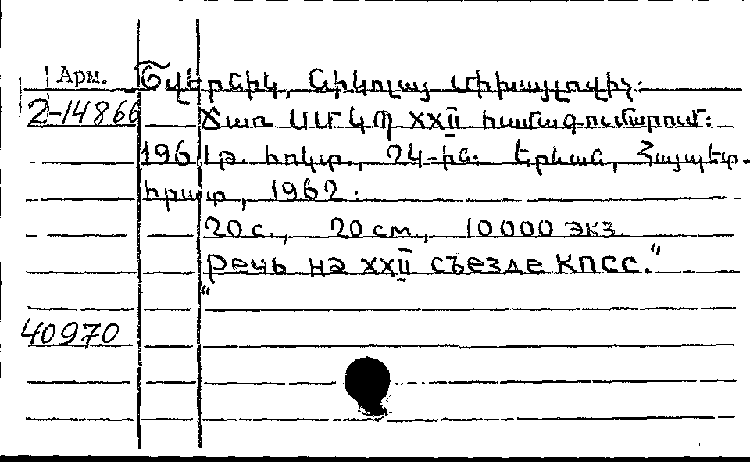 Арм.
2-14866
Շվերնիկ, Նիկոլայ Միխայլովիչ:
Ճառ ՍՄԿՊ XXII համագումարում:
1961թ. հոկտ., 24-ին: Երևան, Հայպետ-
հրատ, 1962:
20 с., 20 см., 10000 экз.
"Речь на XXII съезде КПСС."
40970